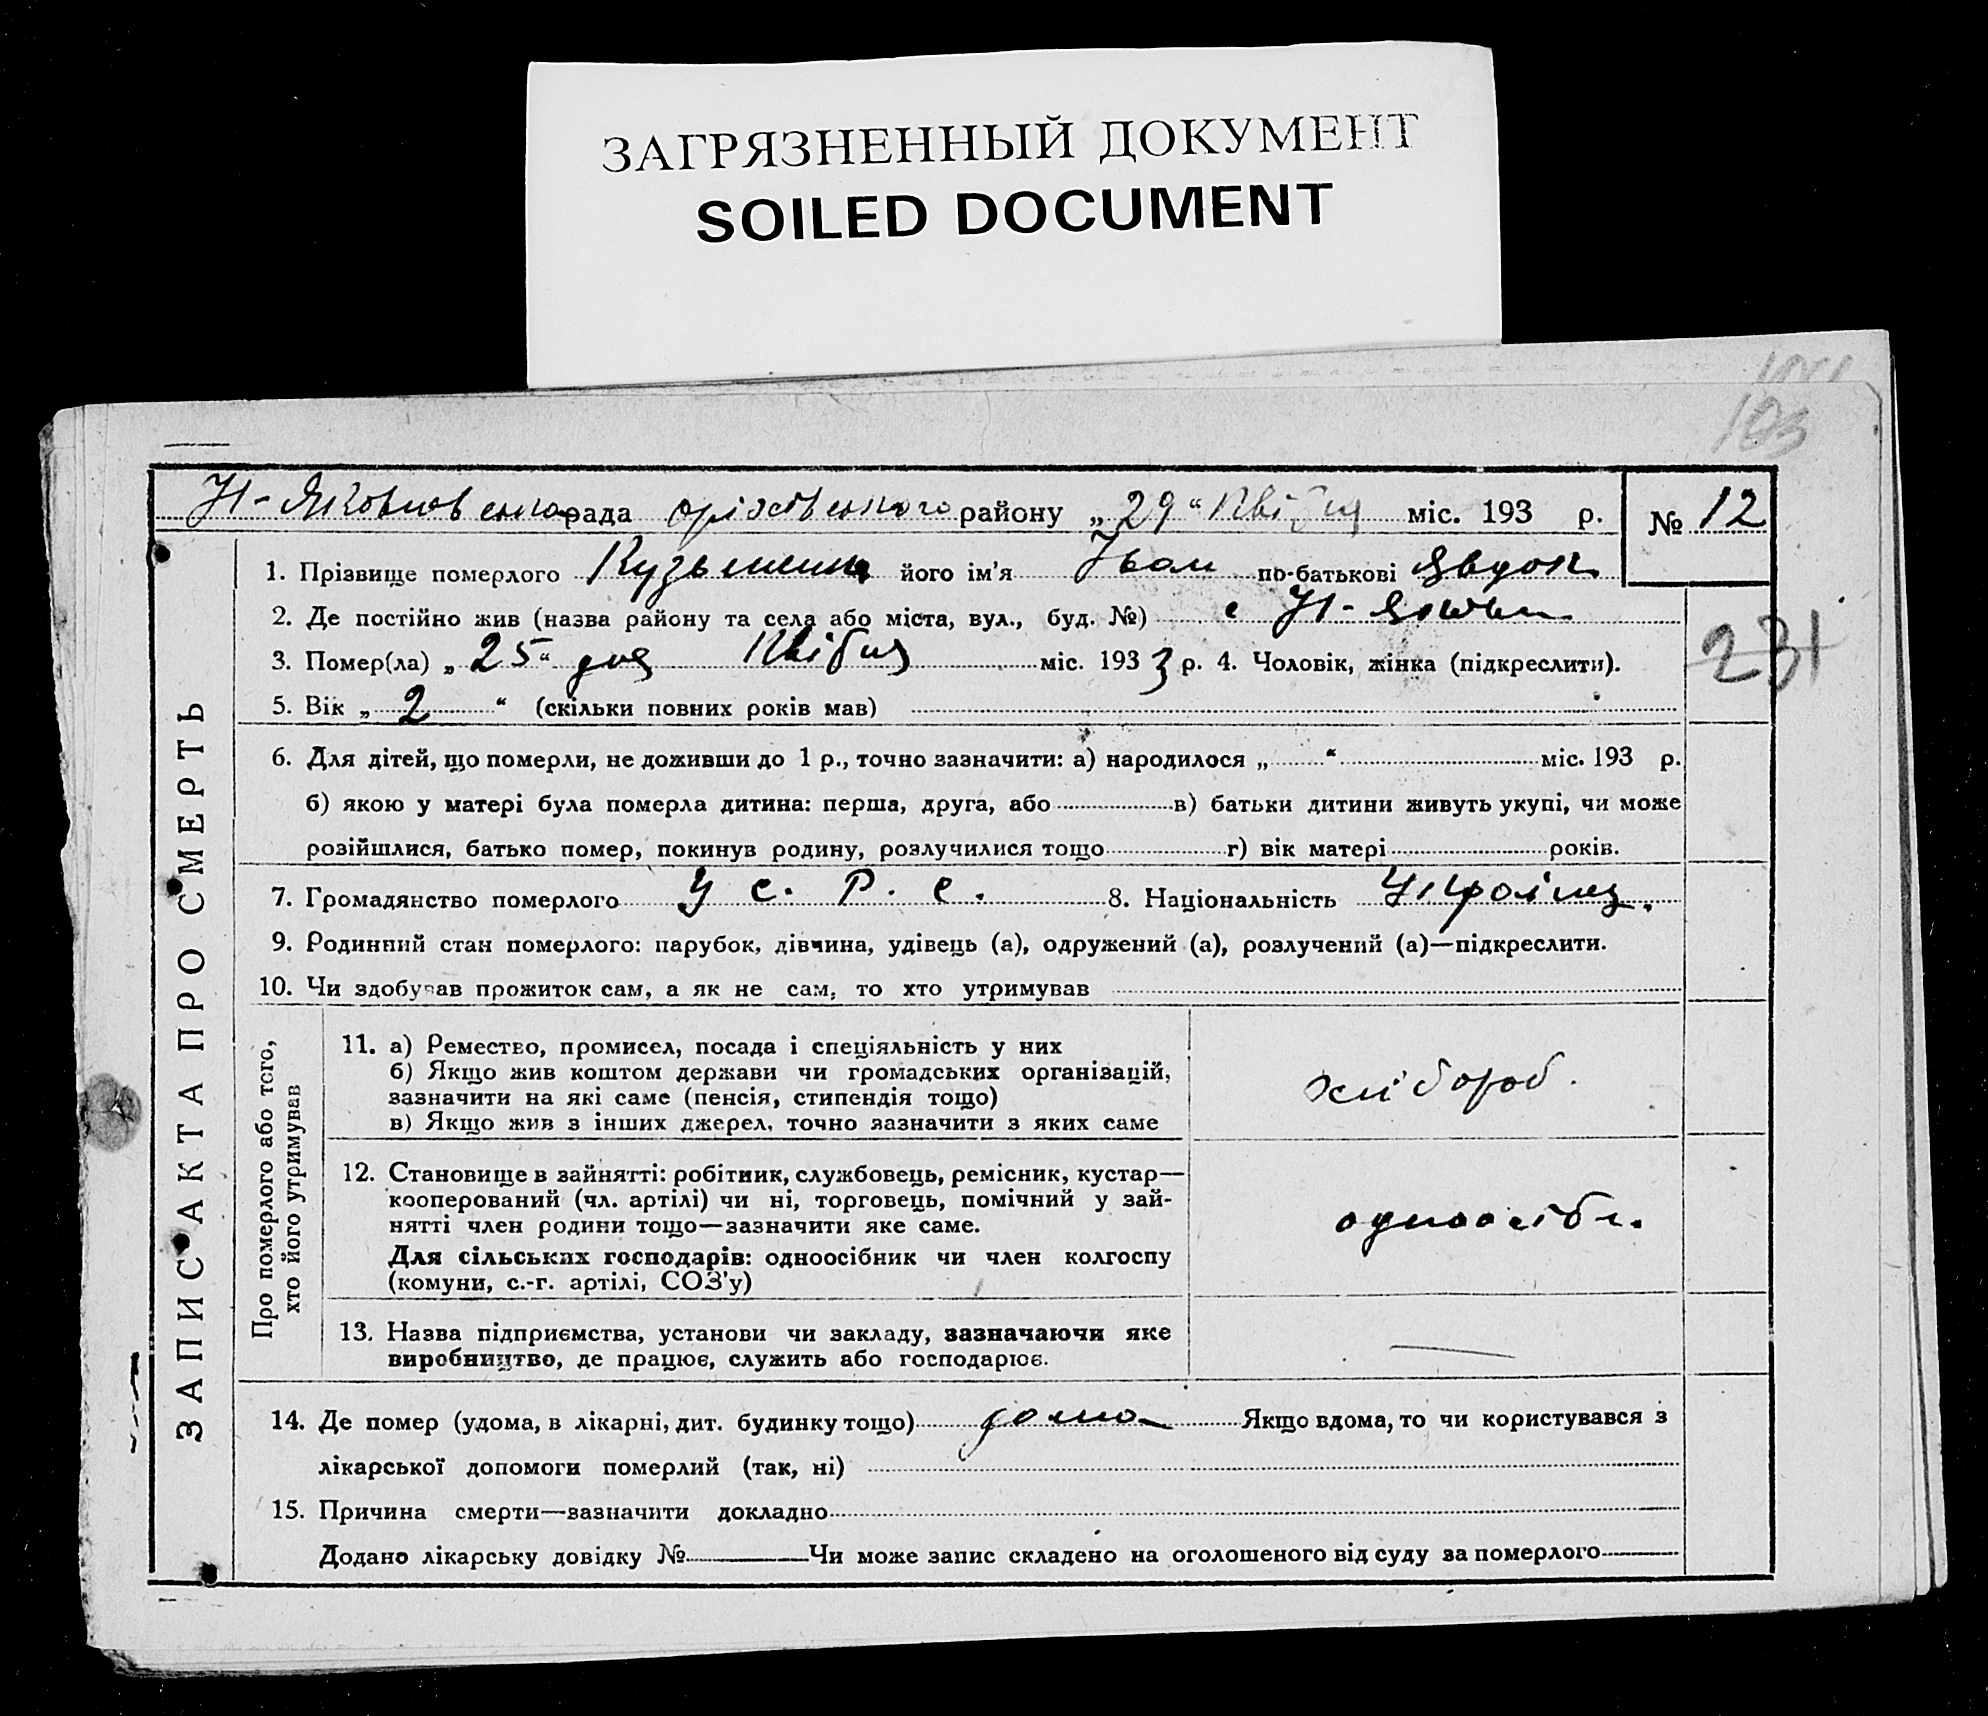 ЗАГРЯЗНЕННЫЙ ДОКУМЕНТ
SOILED DOCUMENT
103
Н-Яковлевська рада оріхівського району „29“ Квітня міс. 193 р. № 12
1. Прізвище померлого Кузьменко його ім'я Іван по-батькові Явдок
2. Де постійно жив (назва району та села або міста, вул., буд. №) с Н-Яковл
231
3. Помер(ла) „25“ дня Квітня міс. 1933 р. 4. Чоловік, жінка (підкреслити).
5. Вік „2“ (скільки повних років мав)
6. Для дітей, що померли, не доживши до 1 р., точно зазначити: а) народилося „ “ міс. 193 р.
б) якою у матері була померла дитина: перша, друга, або в) батьки дитини живуть укупі, чи може
розійшлися, батько помер, покинув родину, розлучилися тощо г) вік матері років.
7. Громадянство померлого У С. Р. С. 8. Національність Україн.
9. Родинний стан померлого: парубок, дівчина, удівець (а), одружений (а), розлучений (а)—підкреслити.
10. Чи здобував прожиток сам, а як не сам, то хто утримував
ЗАПИС АКТА ПРО СМЕРТЬ
Про померлого або того,
хто його утримував
11. а) Ремество, промисел, посада і спеціяльність у них
б) Якщо жив коштом держави чи громадських організацій,
зазначити на які саме (пенсія, стипендія тощо)
в) Якщо жив з інших джерел, точно зазначити з яких саме
хлібороб.
12. Становище в зайнятті: робітник, службовець, ремісник, кустар—
кооперований (чл. артілі) чи ні, торговець, помічний у зай-
нятті член родини тощо—зазначити яке саме.
Для сільських господарів: одноосібник чи член колгоспу
(комуни, с.-г. артілі, СОЗ'у)
одноосібн.
13. Назва підприємства, установи чи закладу, зазначаючи яке
виробництво, де працює, служить або господарює.
14. Де помер (удома, в лікарні, дит. будинку тощо) дома Якщо вдома, то чи користувався з
лікарської допомоги померлий (так, ні)
15. Причина смерти—зазначити докладно
Додано лікарську довідку № Чи може запис складено на оголошеного від суду за померлого